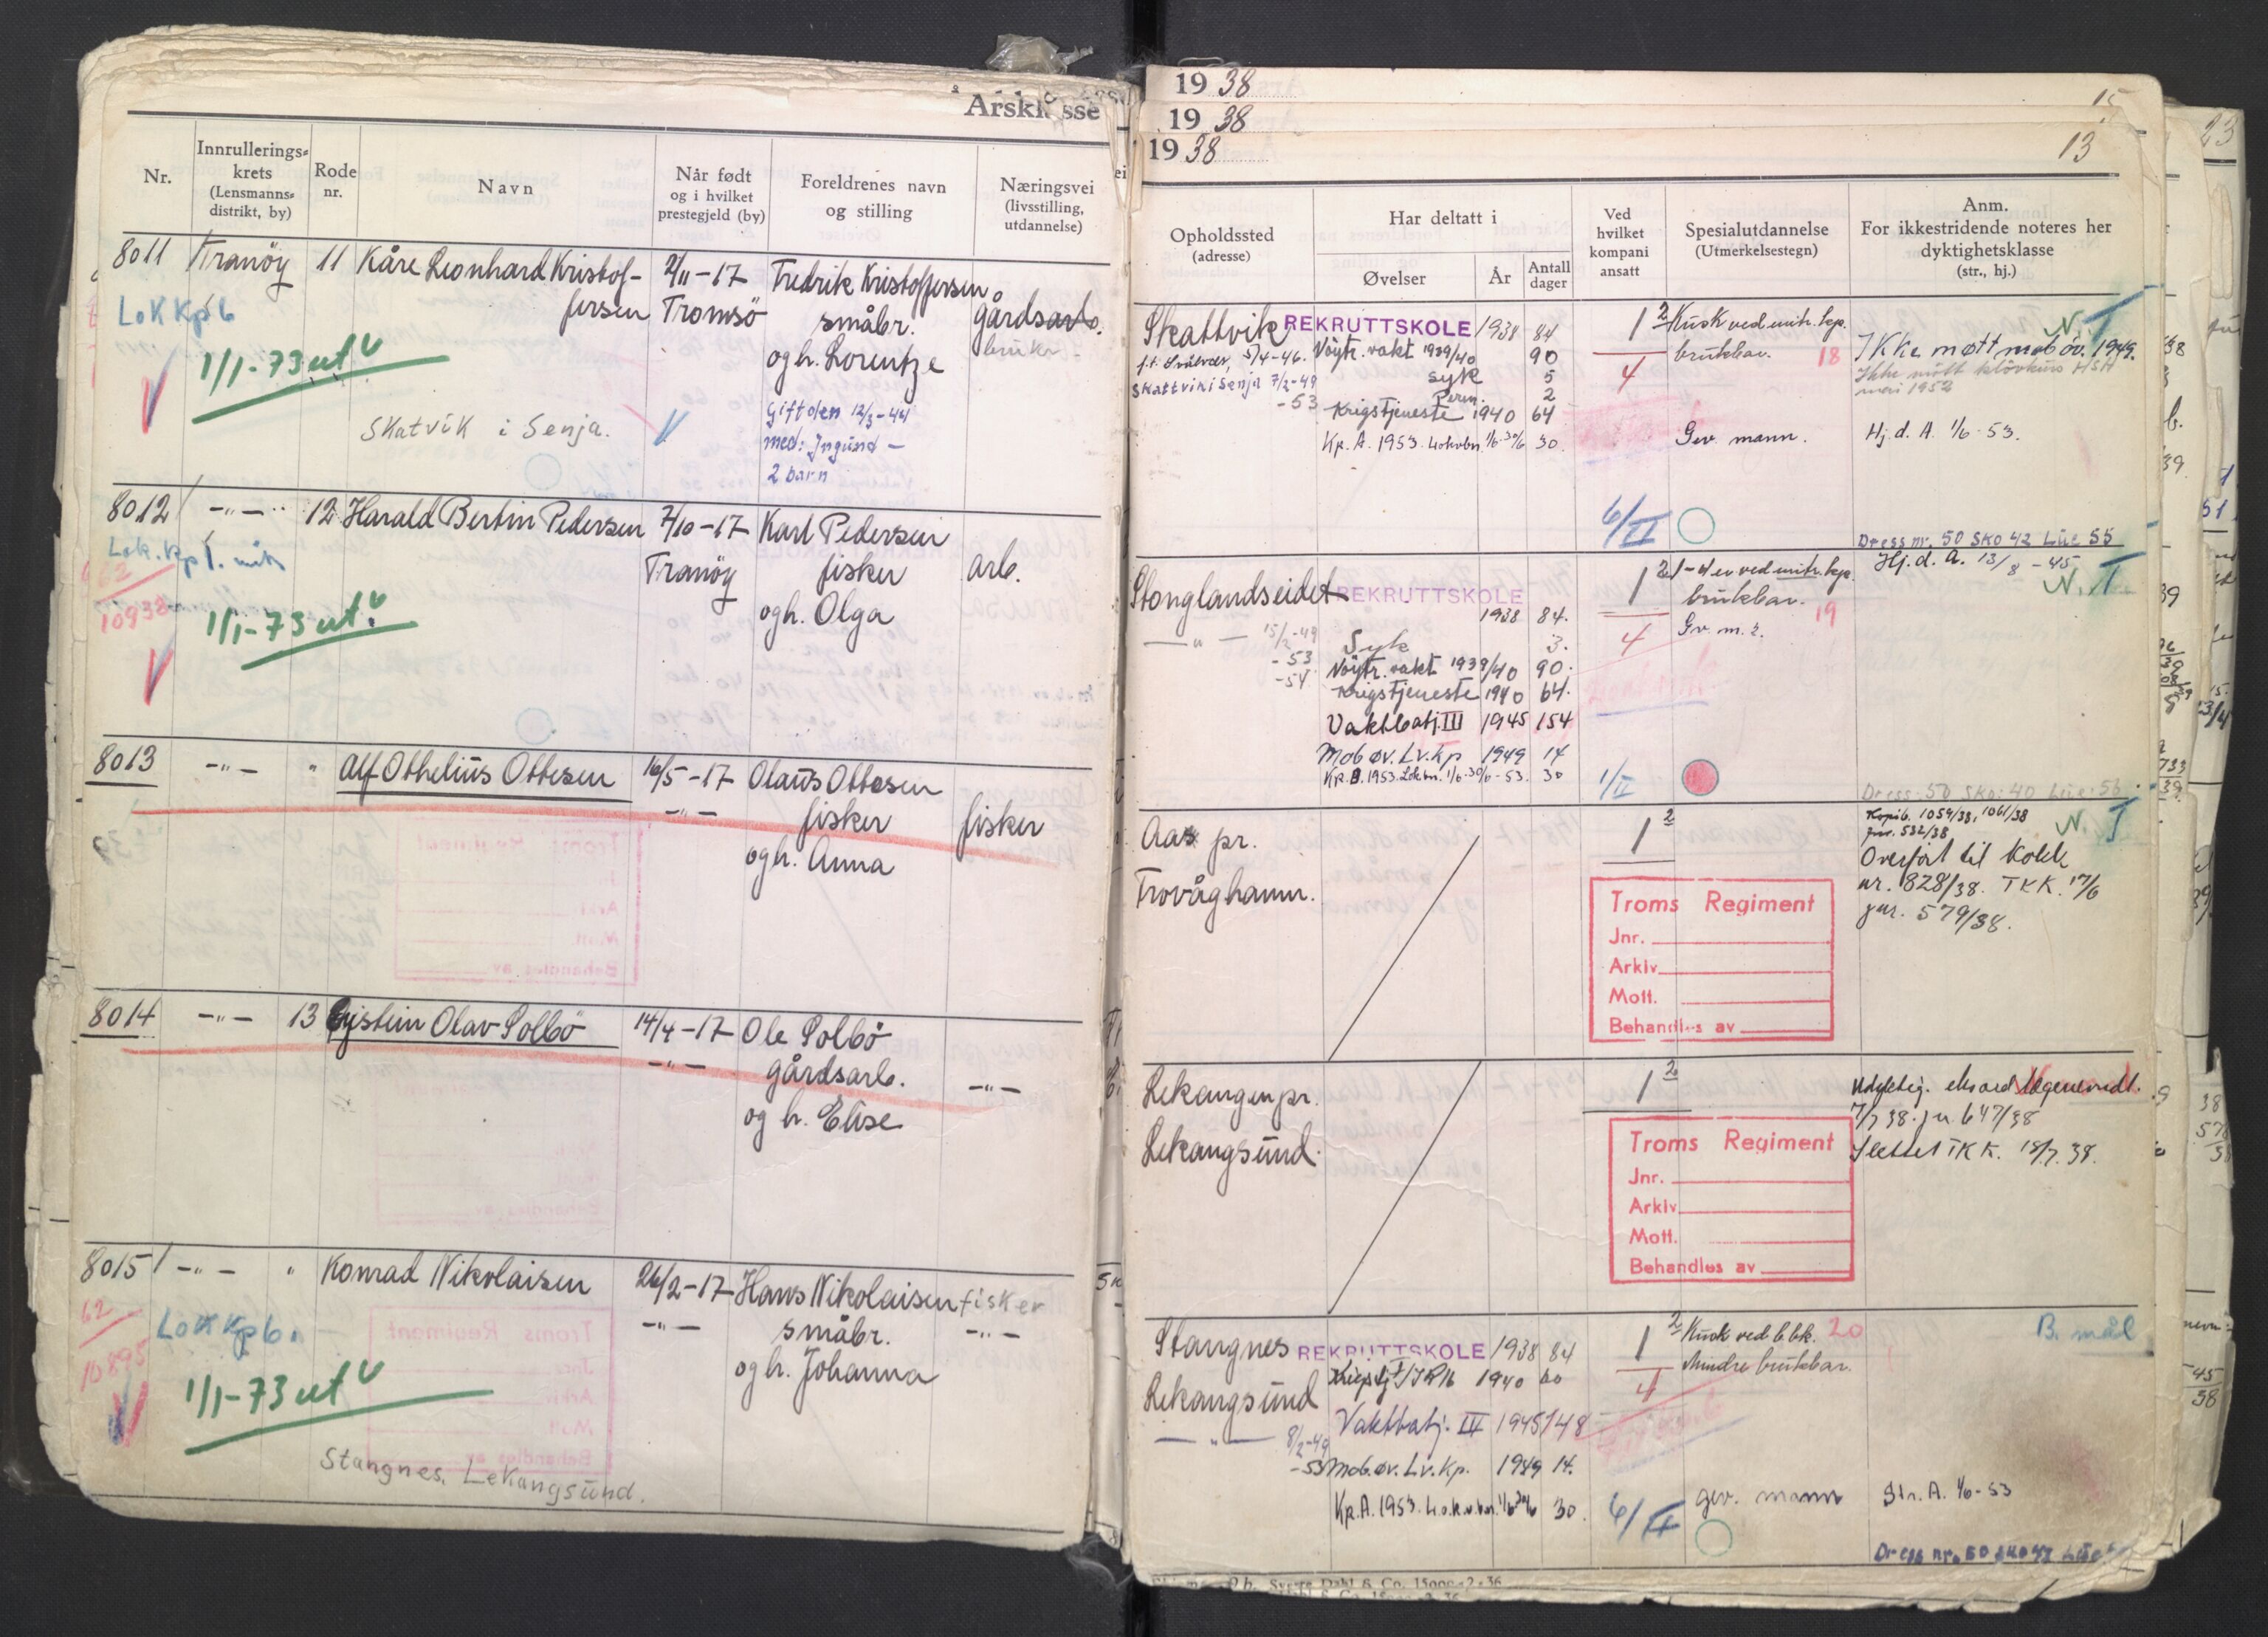 Årsklasse
Nr.
Innrullerings-
krets
(Lensmanns-
distrikt, by)
Rode
nr.
Navn
Når født
og i hvilket
prestegjeld (by)
Foreldrenes navn
og stilling
Næringsvei
(livsstilling,
utdannelse)
8011 Tranöy 11 Kåre Leonhard Kristof- 2/11-17 Fredrik Kristoffersen
fersen Tromsö småbr. gårdsarb.
LoK Kp 6
og h. Lorentze bruker
1/1-73 ut
Gift den 12/3-44
Skatvik i Senja.
med: Ingund —
2 barn
8012 —"— 12 Harald Bertin Pedersen 7/10-17 Karl Pedersen
Lok. Kp 1.
62
Tranöy fisker arb.
10938
1/1-73 ut
og h. Olga
8013 —"— " Alf Othelius Ottesen 16/5-17 Olaus Ottesen
—"— fisker fisker
og h. Anna
8014 —"— 13 Eystein Olav Solbö 14/4-17 Ole Solbö
—"— gårdsarb. —"—
og h. Elise
8015 —"— " Konrad Nikolaisen 26/2-17 Hans Nikolaisen fisker
62
LoK Kp 6.
—"— småbr. —"—
10895
og h. Johanna
1/1-73 ut
Stangnes. Lekangsund.
1938
15
1938
1938
13
23
Opholdssted
(adresse)
Har deltatt i
Øvelser
År
Antall
dager
Ved
hvilket
kompani
ansatt
Spesialutdannelse
(Utmerkelsestegn)
Anm.
For ikkestridende noteres her
dyktighetsklasse
(str., hj.)
Skattvik REKRUTTSKOLE 1938 84 1 2 Kusk ved mitr. kp.
N. T
5/4-46. Nöytr. vakt 1939/40 90 brukbar. 18 Ikke møtt mob öv. 1949.
Skattvik i Senja 7/2-49 syk 5 4
Ikke møtt
-53 Perm. 2
1952
Krigstjeneste 1940 64
Kp. A. 1953. Lokvbn. 1/6-30/6 30. Gev. mann. Hj. d. A. 1/6-53.
6/II
Dress nr. 50 Sko 42 Lue 55
Stonglandseidet REKRUTTSKOLE 1 2 1-4 er ved mitr. kp. Hj. d. A. 13/8-45
1938 84. brukbar. 19 N. T.
—"— 15/2-49 Syk 3. 4 Gv. m. 2.
-53 Nöytr. vakt 1939/40 90.
-54 Krigstjeneste 1940 64.
Vaktbatj. III 1945 154
Mob øv. Lv. Kp 1949 14
Kp. B. 1953. Lokbn. 1/6-30/6-53. 30 1/II
Dress: 50 Sko: 40 Lue: 56
Aas pr. 1 2
Kopib. 1054/38, 1061/38
jnr. 532/38 N. T
Trovåghamn.
Overfört til Kobk
nr. 828/38. TKK. 17/6
jnr. 579/38.
Troms Regiment
Jnr.
Arkiv
Mott.
Behandles av
Lekangen pr. 1 2
7/7 38. jn 647/38
Lekangsund.
Slettet TKK. 18/7. 38.
Troms Regiment
Jnr.
Arkiv
Mott.
Behandles av
Stangnes REKRUTTSKOLE 1938 84 1 2 Kusk ved b.bk. 20 B. mål
IR 16 1940 60 Mindre brukbar.
4
Lekangsund Vaktbatj. III 1945 148
—"— 8/2-49
-53 Mob. øv. Lv. Kp. 1949 14.
Kp. A. 1953. Lok.v.bn. 1/6-30/6 30. 6/II gev. mann Str. A. 1/6-53
Dress nr. 50